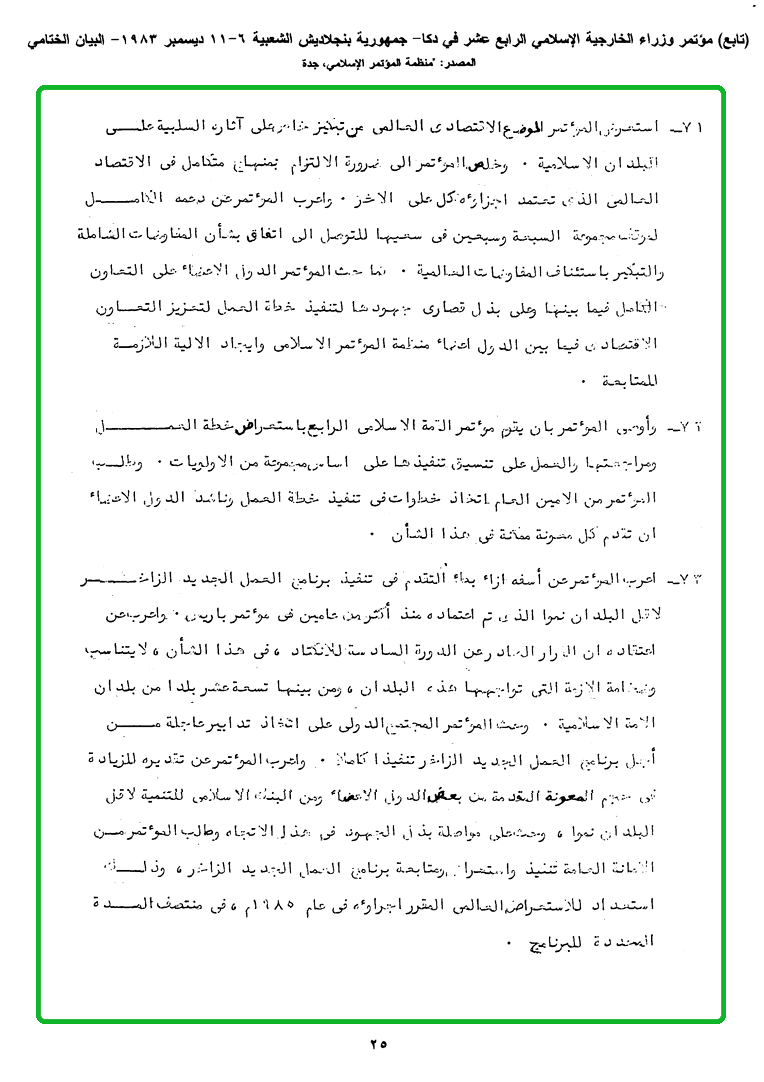 (تابع) مؤتمر وزراء الخارجية الإسلامي الرابع عشر في دكا- جمهورية بنجلاديش الشعبية ٦-١١ ديسمبر ١٩٨٣- البيان الختامي
المصدر: "منظمة المؤتمر الإسلامي، جدة
٧١ــ استعرض المؤتمر الموضع الاقتصادى العالمى من تركيز خاص على آثاره السلبية علـــى
البلدان الاسلامية ٠ وخلص المؤتمر الى ضرورة الالتزام بمنهاج متكامل فى الاقتصاد
العالمى الذى تعتمد اجزاؤه كل على الاخر ٠ واعرب المؤتمر عن دعمه الكامــــل
لموقف مجموعة السبعة وسبعين فى سعيها للتوصل الى اتفاق بشأن المفاوضات الشاملة
والتبكير باستئناف المفاوضات العالمية ٠ كما حث المؤتمر الدول الاعضاء على التعاون
الكامل فيما بينها وعلى بذل قصارى جهودها لتنفيذ خطة العمل لتعزيز التعـــاون
الاقتصادى فيما بين الدول اعضاء منظمة المؤتمر الاسلامى وايجاد الالية اللازمـــة
للمتابعة ٠
٧٢ــ وأوصى المؤتمر بان يقوم مؤتمر القمة الاسلامى الرابع باستعراض خطة العمــــــــل
ومراجعتها والعمل على تنسيق تنفيذها على اساس مجموعة من الاولويات ٠ وطلـــب
المؤتمر من الامين العام اتخاذ خطوات فى تنفيذ خطة العمل وناشد الدول الاعضاء
ان تقدم كل معونة ممكنة فى هذا الشأن ٠
٧٣ــ اعرب المؤتمر عن أسفه ازاء بطء التقدم فى تنفيذ برنامج العمل الجديد الزاخـــــر
لاقل البلدان نموا الذى تم اعتماده منذ أكثر من عامين فى مؤتمر باريس ٠ واعرب عن
اعتقاده ان القرار الصادر عن الدورة السادسة للانكتاد ، فى هذا الشأن ، لا يتناسب
وضخامة الازمة التى تواجهها هذه البلدان ، ومن بينها تسعة عشر بلدا من بلدان
الامة الاسلامية ٠ وحث المؤتمر المجتمع الدولى على اتخاذ تدابير عاجلة مـــــن
أجل برنامج العمل الجديد الزاخر تنفيذا كاملا ٠ واعرب المؤتمر عن تقديره للزيادة
فى حجم المعونة المقدمة من بعض الدول الاعضاء ومن البنك الاسلامى للتنمية لاقل
البلدان نموا ، وحث على مواصلة بذل الجهود فى هذا الاتجاه وطالب المؤتمر مـــن
الامانة العامة تنفيذ واستعراض ومتابعة برنامج العمل الجديد الزاخر ، وذلـــــك
استعداد للاستعراض العالمى المقرر اجراؤه فى عام ١٩٨٥م ، فى منتصف المـــدة
المحددة للبرنامج ٠
٢٥